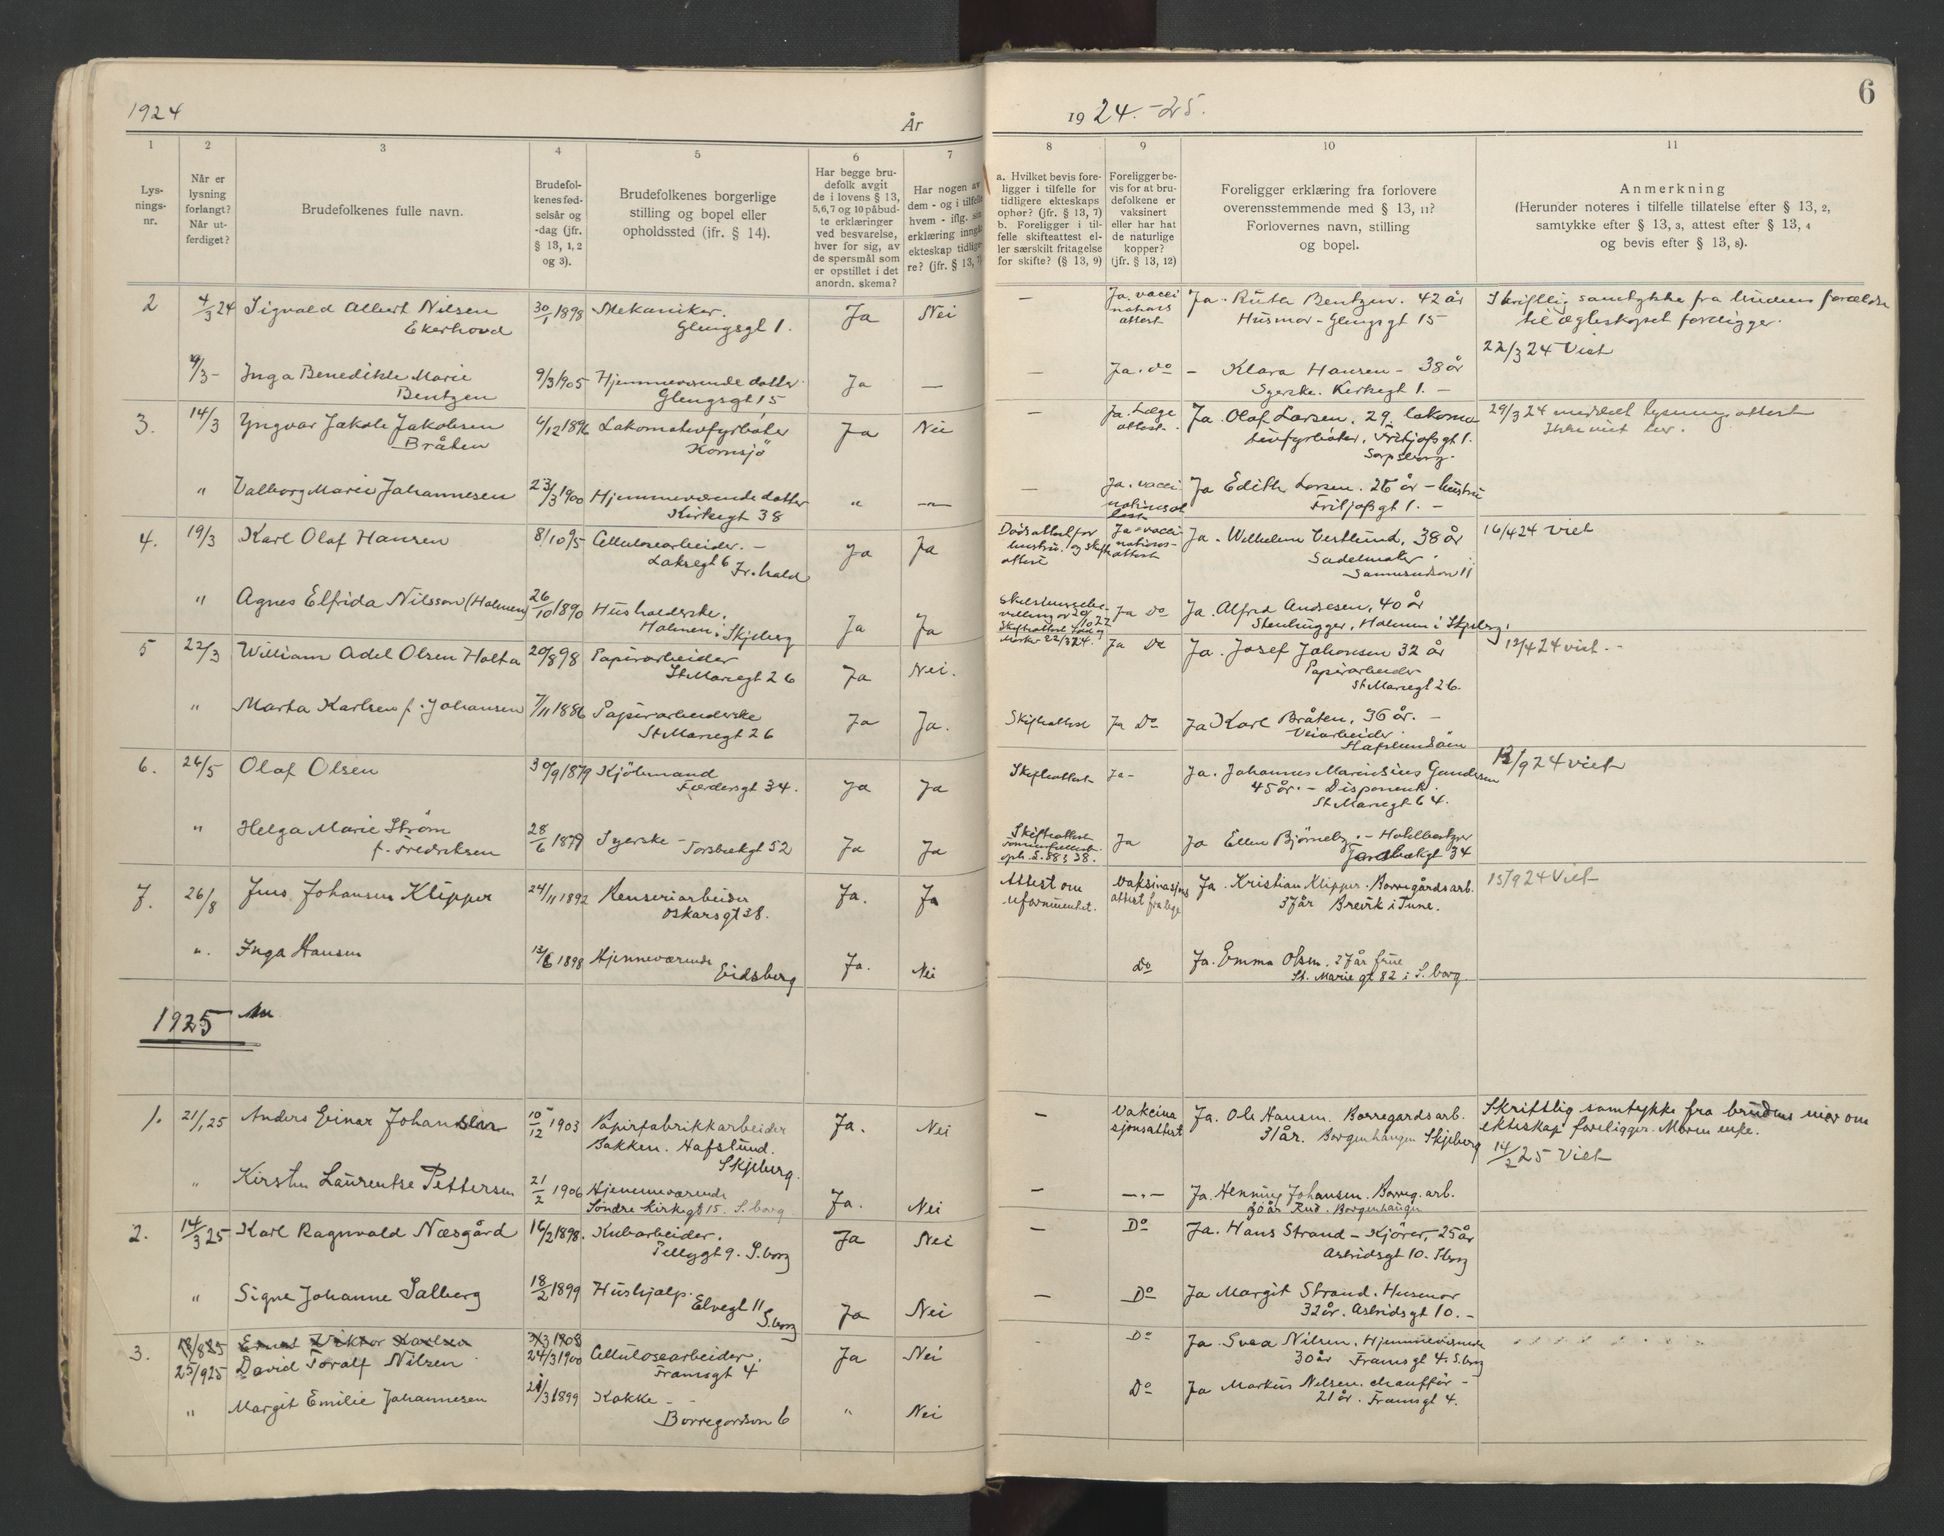 1924
År
1924.-25.
6
1
2
3
4
5
6
7
8
9
10
11
Lys-
nings-
nr.
Når er
lysning
forlangt?
Når ut-
ferdiget?
Brudefolkenes fulle navn.
Brudefol-
kenes fød-
selsår og
-dag (jfr.
§ 13, 1, 2
og 3).
Brudefolkenes borgerlige
stilling og bopel eller
opholdssted (ifr. § 14).
Har begge bru-
defolk avgit
de i lovens § 13,
5,6,7 og 10 påbud-
te erklæringer
ved besvarelse,
hver for sig, av
de spørsmål som
er opstillet i det
anordn. skema?
Har nogen av
dem - og i tilfelle
hvem - iflg. sin
erklæring inngåt
ekteskap tidlige-
re? (jfr. § 13, 7)
a. Hvilket bevis fore-
ligger i tilfelle for
tidligere ekteskaps
ophør? (jfr. § 13, 7)
b. Foreligger i til-
felle skifteattest el-
ler særskilt fritagelse
for skifte? (§ 13, 9)
Foreligger be-
vis for at bru-
defolkene er
vaksinert
eller har hat
de naturlige
kopper?
(jfr. § 13, 12)
Foreligger erklæring fra forlovere
overensstemmende med § 13, 11?
Forlovernes navn, stilling
og bopel.
Anmerkning
(Herunder noteres i tilfelle tillatelse efter § 13, 2,
samtykke efter § 13, 3, attest efter § 13, 4
og bevis efter § 13, 8).
2 4/3 24 Sigvald Albert Nilsen 30/1 1898 Mekaniker. Ja Nei — Ja. vacci Ja. Ruth Bentzen. 42 år Skriftlig samtykke fra brudens forældre
Ekerhovd Glengsgt 1. nations attest Husmor - Glengsgt 15 - til ægteskapet foreligger.
22/3 24 Viet
Inga Benedikte Marie 9/3 1905 Hjemmeværende datter. Ja — — Ja. do - Klara Hansen - 38 år
Bentzen Glengsgt 15 Syerske. Kirkegt 1. -
3. 14/3 Yngvar Jakob Jakobsen 4/12 1896 Lokomotivfyrbøter Ja Nei — Ja. Læge attest. Ja. Olaf Larsen. 29. lokomo 29/3 24 meddelt lysningsattest
Bråten Kornsjö tivfyrböter, Fritjofsgt 1. Ikke viet her.
Sarpsborg.
" Valborg Marie Johannesen 23/3 1900 Hjemmeværende datter " — — Ja. vacci Ja Edith Larsen. 25 år - hustru
Kirkegt 38 Fritjofsgt 1. -
4. 19/3 Karl Olaf Hansen 8/10 95 Cellulosearbeider. - Ja Ja Dødsattest for Ja - vacci Ja. Wilhelm Vestlund, 38 år 16/4 24 viet
Laksegt 6 Fr.hald hustru. og skifte attest nations- attest Sadelmaker
" Agnes Elfrida Nilsson (Holmen) 26/10 1890 Husholderske. Ja Ja Ja Do Ja. Alfred Andresen, 40 år
Holmen i Skjeberg Stenhugger, Holmen i Skjeberg.
5 22/3 William Adel Olsen Holta 20/8 98 Papirarbeider Ja Nei. Ja Do Ja. Josef Johansen 32 år 12/4 24 viet. -
St Mariegt 26 Papirarbeider
St Mariegt 26.
" Marta Karlsen f. Johansen 7/11 1886 Papirarbeiderske Ja Ja. Skifteattest Ja Do Ja Karl Bråten, 36 år. -
St Mariegt 26 Veiarbeider
6. 26/5 Olaf Olsen 30/9 1879 Kjöbmand Ja Ja Skifteattest Ja - Ja. Johannes Marinsius Gundersen 12/9 24 viet
Færdersgt 34. 45 år. - Disponent.
St Mariegt 64.
" Helga Marie Ström 28/6 1879 Syerske - Ja Ja Skifteattest Ja Ja Ellen Bjørneby. - Hotelbestyrer
f. Fredriksen Torsbækgt 52 Torsbækgt 34
7. 26/8 Jens Johansen Klipper 24/11 1892 Renseriarbeider Ja. Ja Attest om Vaksinasjons Ja. Kristian Klipper. Borregårdsarb. 15/9 24 Viet
Oskarsgt 28. uformuenhet. attest fra læge 37 år Brevik i Tune.
" Inga Hansen 12/6 1898 Hjemmeværende Ja. Nei Do Ja. Emma Olsen. 27 år frue
Eidsberg St. Marie gt 82 i S.borg
1925
1. 21/1 25 Anders Einar Johansen 10/12 1903 Papirfabrikkarbeider Ja. Nei — Vakcina Ja. Ole Hansen. Borregardsarb. Skriftlig samtykke fra brudens mor om
Bakken. Hafslund. sjonsattest 31 år. Borgenhaugen Skjeberg ekteskap foreligger. Moren enke.
Skjeberg. 14/2 25 Viet
" Kirsten Laurentse Pettersen 21/2 1906 Hjemmeværende Ja. Nei — —"— Ja. Henning Johansen. Borreg.arb.
Søndre Kirkegt 15. S.borg 30 år Rud. Borgenhaugen
2. 14/3 25 Karl Ragnvald Næsgård 16/2 1898. Kubarbeider. Ja Nei — Do Ja. Hans Strand - Kjörer, 25 år
Pellygt 9. S.borg Astridsgt 10. Sborg
" Signe Johanne Salberg 18/2 1899 Hushjælp. Ja Nei — Do Ja Margit Strand. Husmor
Elvegt 11 S.borg 32 år. Astridsgt 10. -
3. 18/8 25 Ernst Viktor Karlsen 31/3 1908 Do Ja. Svea Nilsen. Hjemmeværende
25/9 25 David Toralf Nilsen 24/3 1900 Cellulosearbeider. Ja Nei 30 år Framsgt 4. S.borg
Framsgt 4
" Margit Emilie Johannesen 21/3 1899 Kokke - " Nei Do Ja Markus Nilsen. chauffør -
Borregordson 6 21 år. Framsgt 4.